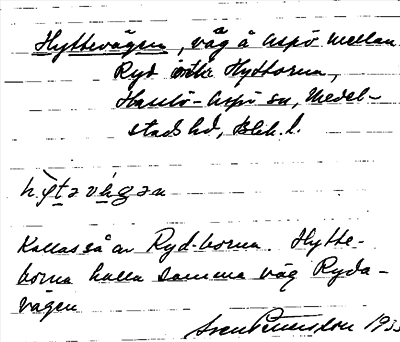 Hyttevägen, väg å Aspö mellan
Ryd och Hyttorna,
Hasslö-Aspö sn, Medel-
stads hd, Blek. l.
Kallas så av Ryd-borna. Hytte-
borna kalla samma väg Ryda-
vägen
Sven Benson 1933